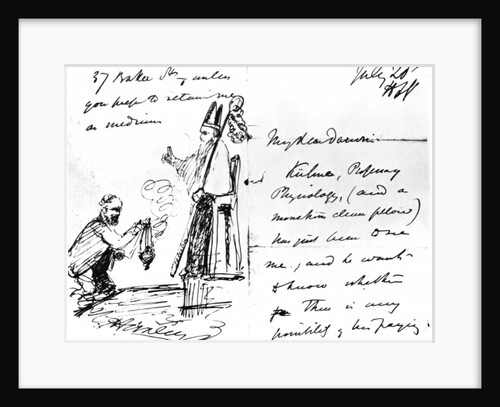 37 Baker St unless
you prefer to retain me
as medium
July 20
My dear Darwin
Kühne, Professor
Physiology, (and a
monstrous clever fellow)
has just been
me, and he wants
to know whether
there is any
possibility of his paying